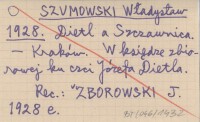 SZUMOWSKI Władysław
1928. Dietl a Szczawnica.
— Kraków. W księdze zbio-
rowej ku czci Józefa Dietla.
Rec.: ZBOROWSKI J.
1928 e.